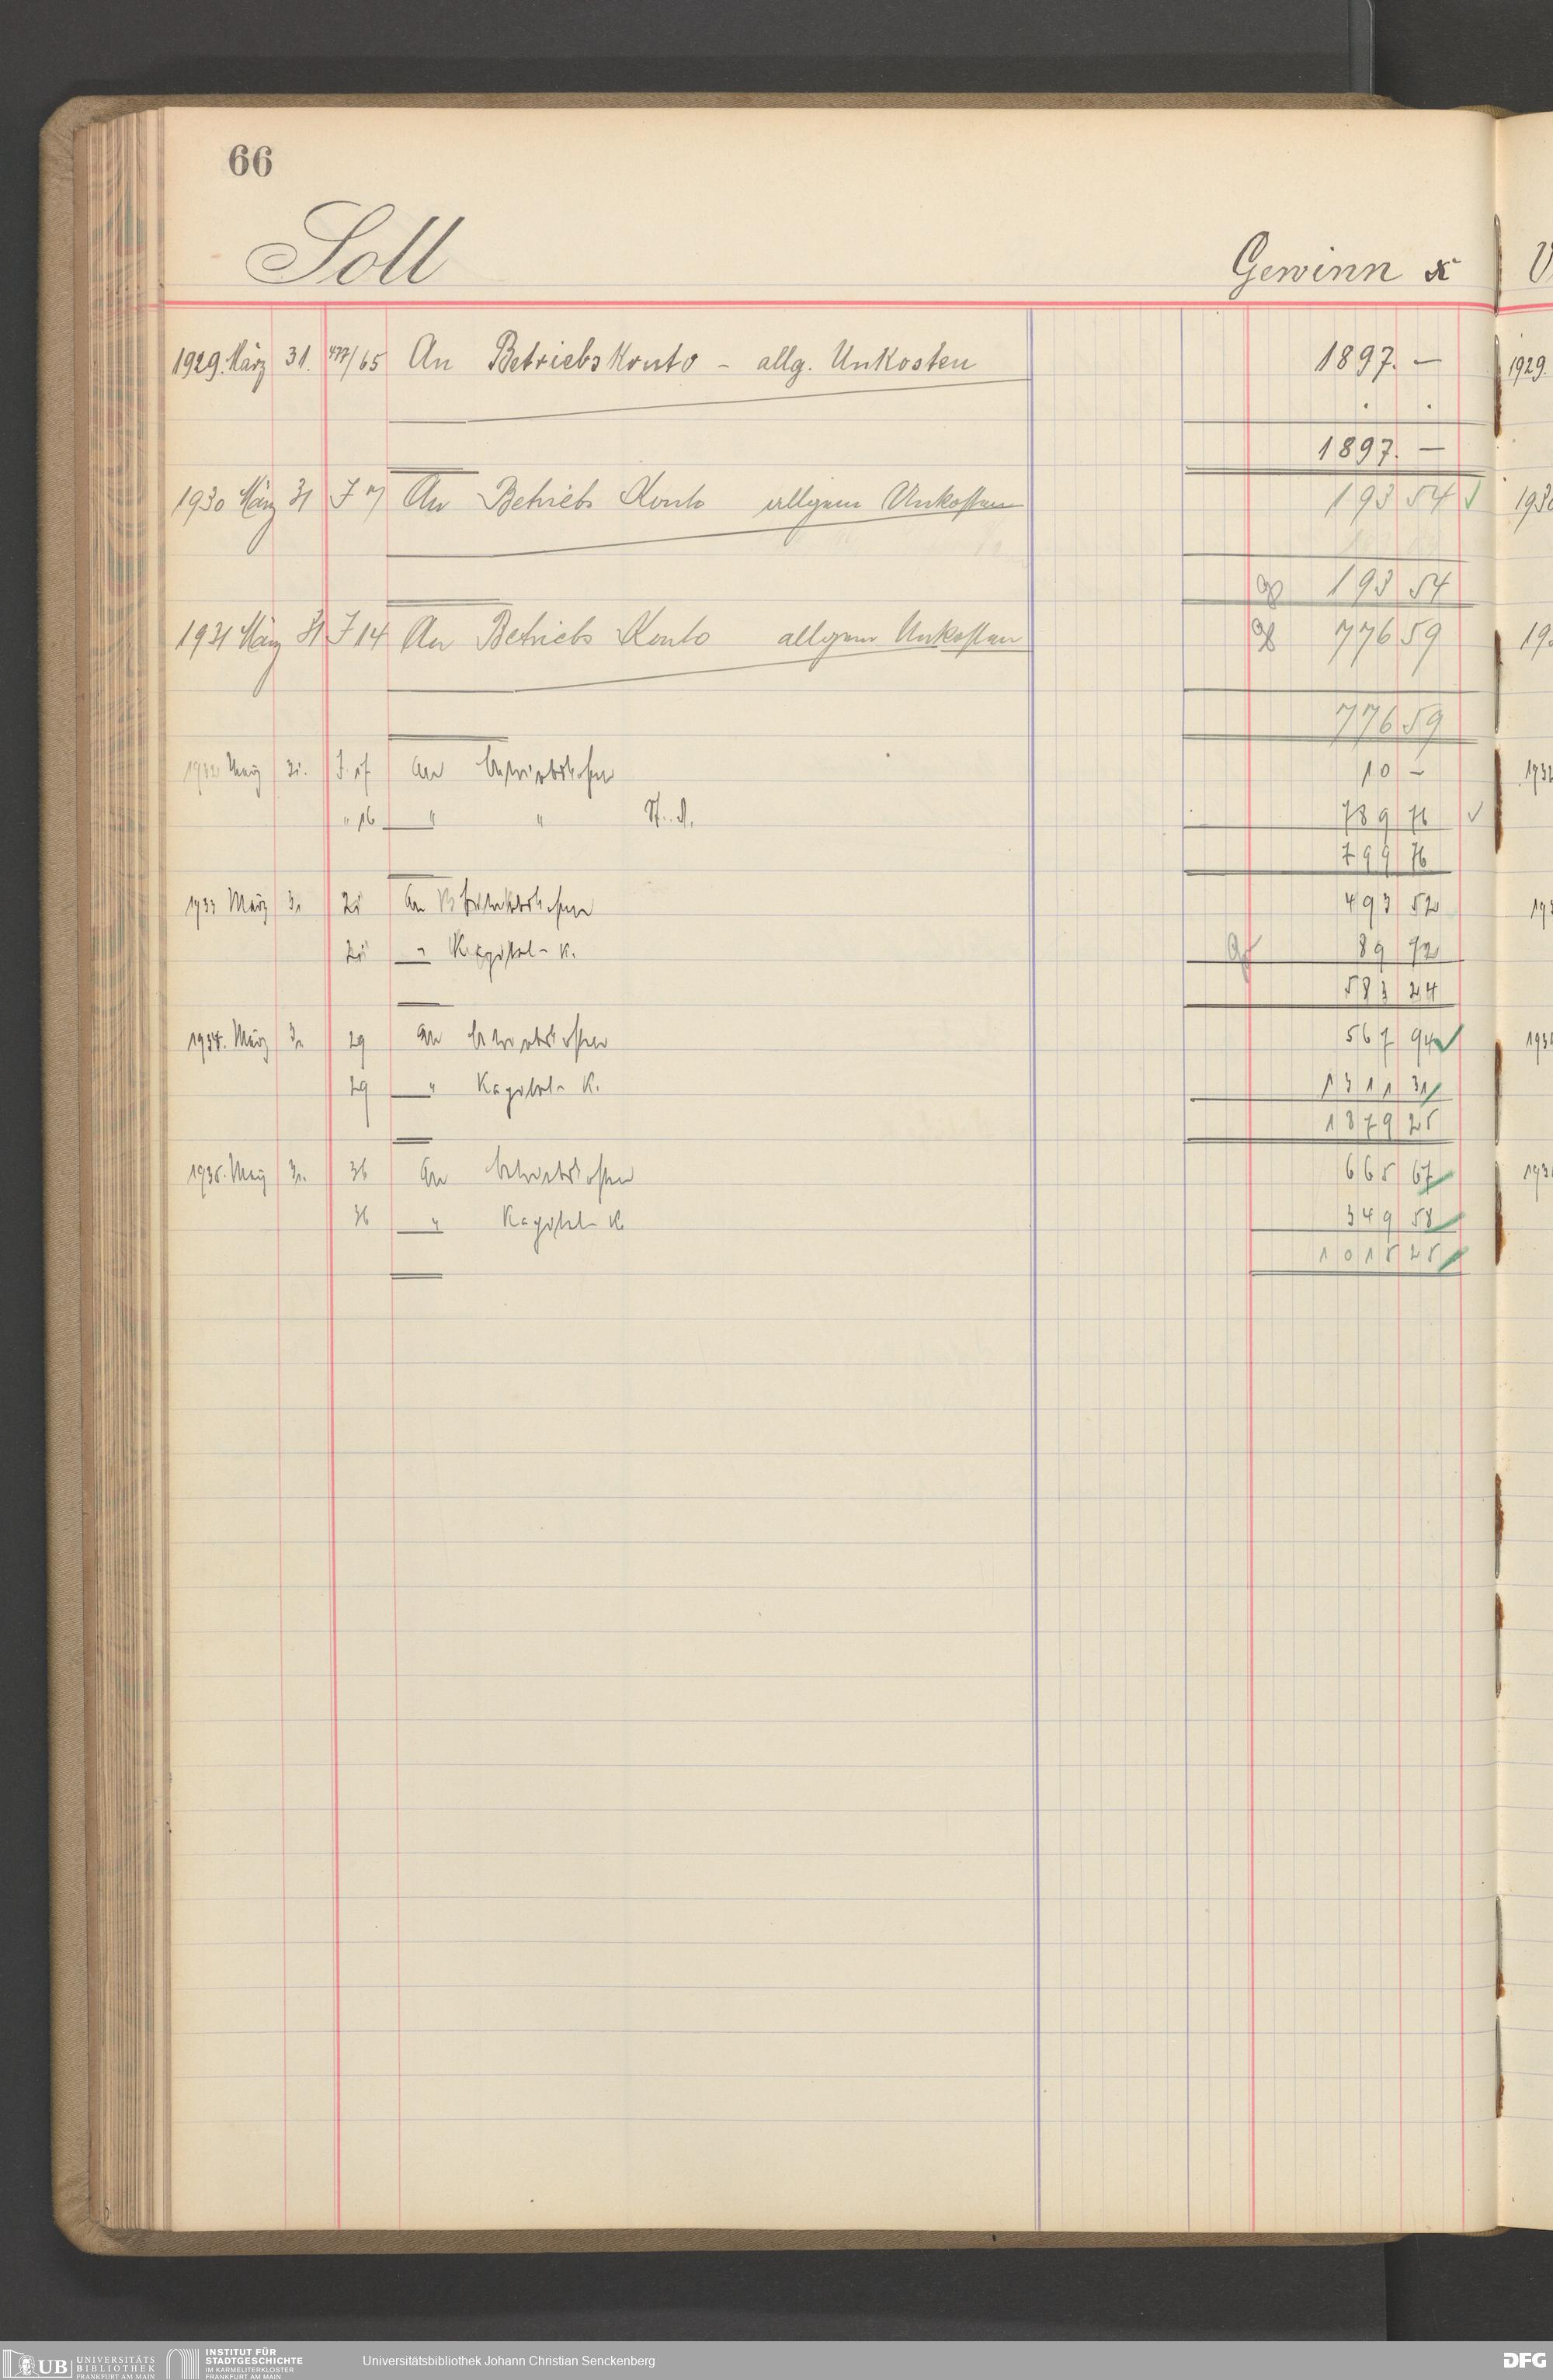 66
Soll Gewinn & V
1929. März 31. 477/65 An Betriebskonto - allg. Unkosten 1897. — 1929.
1897. —
1930 März 31 J 7 An Betriebs Konto allgem Unkosten 193 54 1930
193 54
1931 März 31 J 14 An Betriebs Konto allgem Unkosten 776 59 193
776 59
1932 März 31. J. 15 An Betriebskosten 10 - 1932
" 16 " " 789 76
799 76
1933 März 31 21 An Betriebskosten 493 52 193
21 " Kapital-K. 89 72
583 24
1934. März 31 29 An Betriebskosten 567 94 193
29 " Kapital-K. 1311 31
1879 25
1935. März 31. 36 An Betriebskosten 665 67 193
36 " Kapital-K 349 58
1015 25
UB UNIVERSITÄTS
BIBLIOTHEK
FRANKFURT AM MAIN
INSTITUT FÜR
STADTGESCHICHTE
IM KARMELITERKLOSTER
FRANKFURT AM MAIN
Universitätsbibliothek Johann Christian Senckenberg
DFG